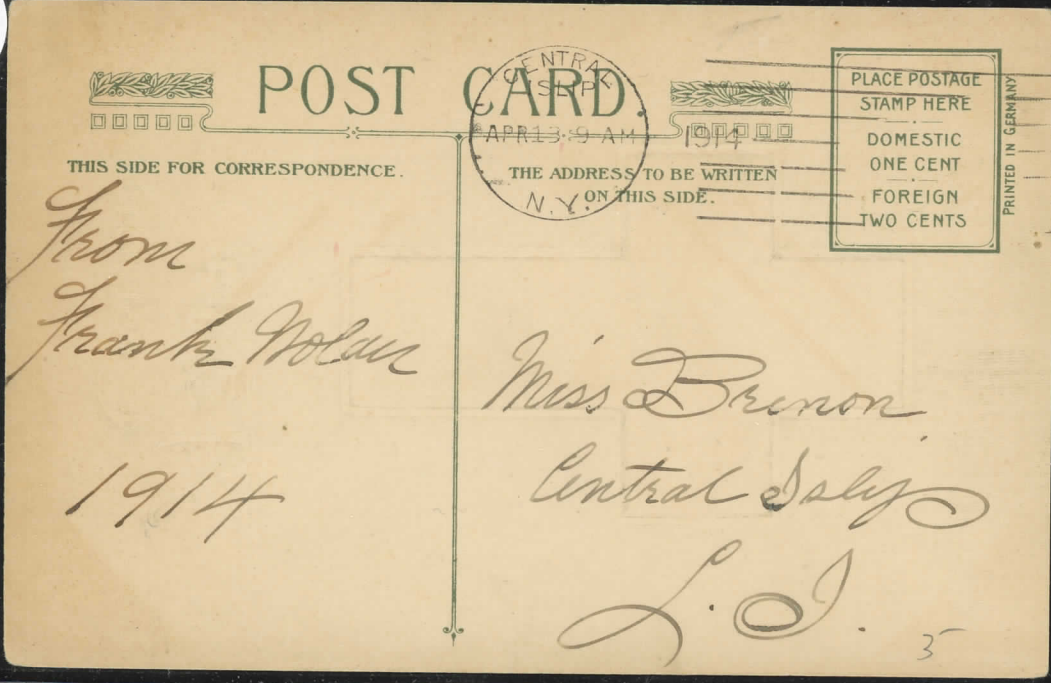 POST CARD
CENTRAL
ISLIP
APR 13 9 AM
1914
N.Y.
PLACE POSTAGE
STAMP HERE
DOMESTIC
ONE CENT
FOREIGN
TWO CENTS
PRINTED IN GERMANY
THIS SIDE FOR CORRESPONDENCE.
THE ADDRESS TO BE WRITTEN
ON THIS SIDE.
From
Frank Nolan
1914
Miss Brenon
Central Isly
L. I.
5